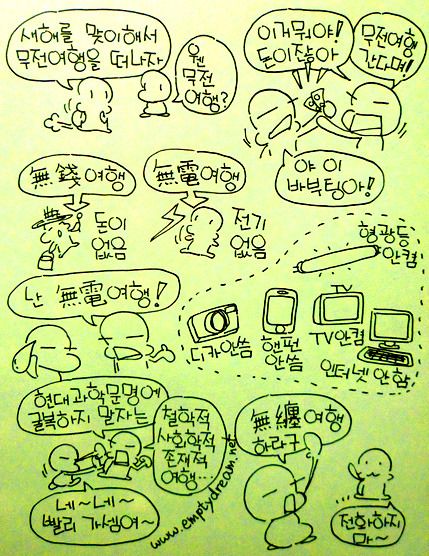 새해를 맞이해서
무전여행을 떠나자
웬
무전
여행?
이거뭐야!
돈이잖아
무전여행
간다며!
야 이
바부팅아!
無錢여행
無電여행
돈이
없음
전기
없음
난 無電여행!
형광등
안켬
디카안씀
핸펀
안씀
TV
TV안켬
인터넷 안함
현대과학문명에
굴복하지 말자는
철학적
사회학적
존재적
여행…
네~네~
빨리 가셈여~
無纏여행
하라구
전화하지
마~
www.emptydream.net